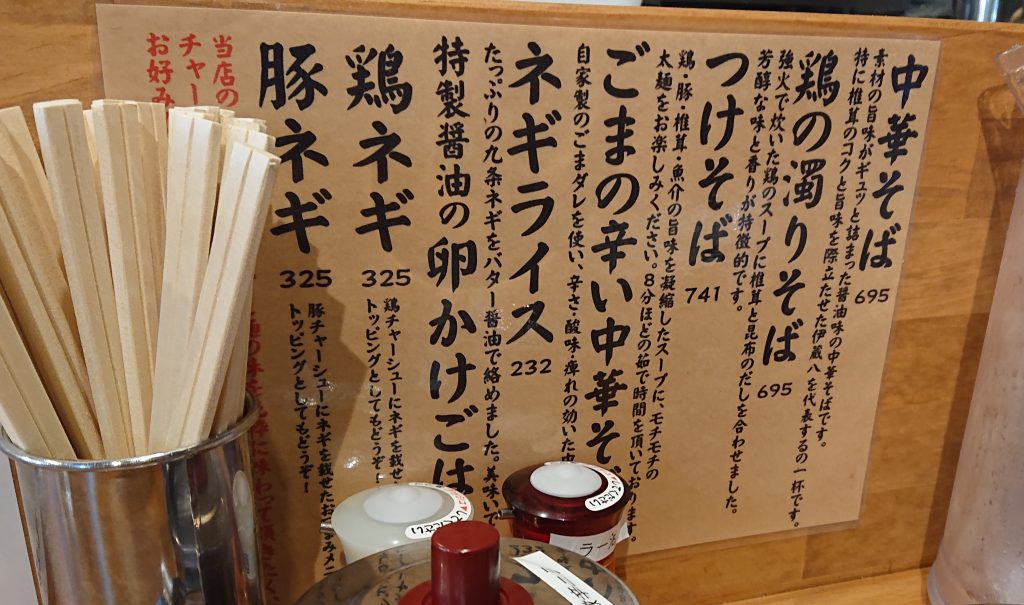 中華そば 695
素材の旨味がギュッと詰まった醤油味の中華そばです。
特に椎茸のコクと旨味を際立たせた伊蔵八を代表するの一杯です。
鶏の濁りそば 695
強火で炊いた鶏のスープに椎茸と昆布のだしを合わせました。
芳醇な味と香りが特徴的です。
つけそば 741
鶏・豚・椎茸・魚介の旨味を凝縮したスープに、モチモチの
太麺をお楽しみください。8分ほどの茹で時間を頂いております。
ごまの辛い中華そ
自家製のごまダレを使い、辛さ・酸味・痺れの効いた
ネギライス 232
たっぷりの九条ネギをバター醤油で絡めました。美味いで
特製醤油の卵かけごは
鶏ネギ 325
鶏チャーシューにネギを載せ
トッピングとしてもどうぞ!
豚ネギ 325
豚チャーシューにネギを載せたお
トッピングとしてもどうぞ!
当店の
チャー
お好み
ラー油